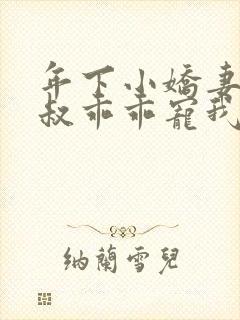 年下小嬌妻
叔乖乖寵我
納蘭雪兒